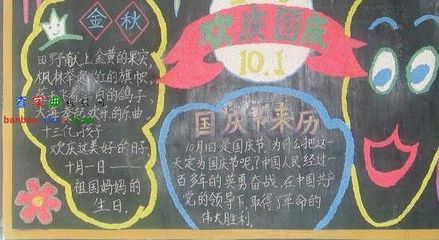 金秋
田野献上金黄的果实,
枫林举起红的旗帜,
的鸽子,
欢乐的乐曲。
十三亿孩子
欢庆这美好的日子,
十月一日
祖国妈妈的
生日。
欢庆国庆
10.1
国庆节来历
10月1日是国庆节,为什么把这一
天定为国庆节呢?中国人民经过一
百多年的英勇奋战,在中国共产
党的领导下,取得了革命的
伟大胜利。